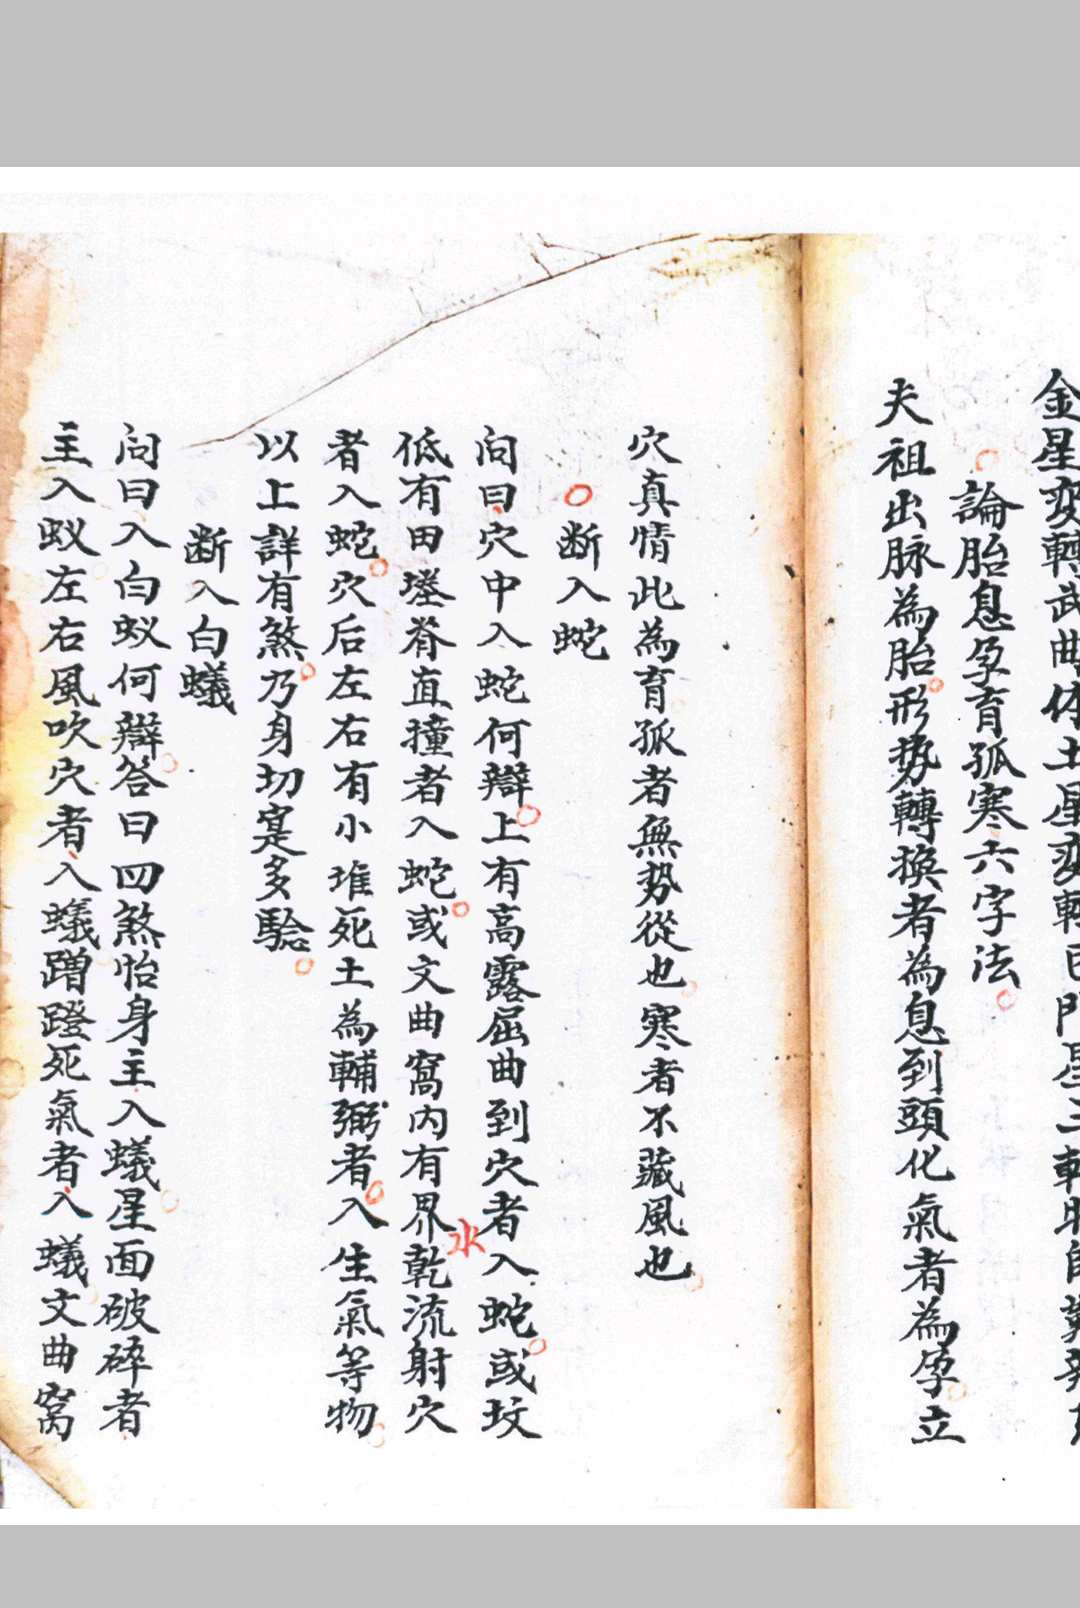 金星变轉武曲作土星变轉巨門星三轉明師
論胎息孕育孤寒六字法
夫祖出脉為胎形势轉換者為息到頭化氣者為孕立
穴真情此為育孤者無势從也寒者不藏風也
断入蛇
问曰穴中入蛇何辯上有高露屈曲到穴者入蛇或坟
低有田塍脊直撞者入蛇或文曲窩内有界水乾流射穴
者入蛇穴后左右有小堆死土為輔弼者入生氣等物
以上詳有煞乃身切寔多騐
断入白蟻
问曰入白蚁何辯答曰四煞怡身主入蟻星面破碎者
主入蚁左右風吹穴者入蟻蹭蹬死氣者入蟻文曲窩